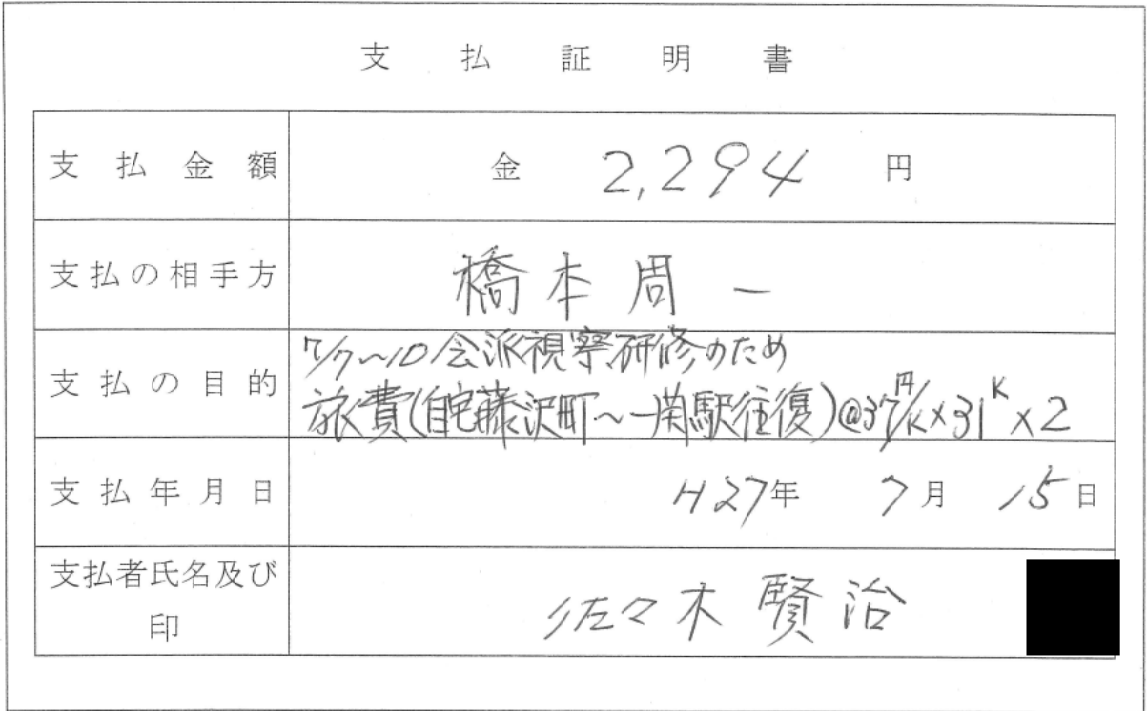 支払証明書
支払金額 金 2,294 円
支払の相手方 橋本周一
支払の目的 7/7~10会派視察研修のため
旅費(自宅藤沢町~一関駅往復)@37円/K×31K×2
支払年月日 H27年 7月 15日
支払者氏名及び
印 佐々木賢治